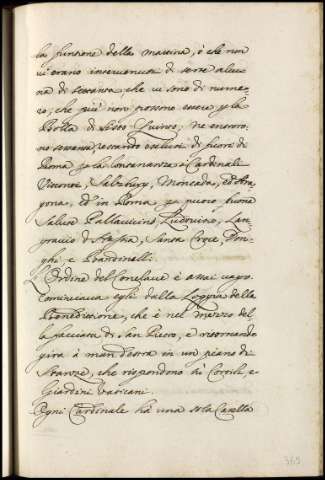 la funzione della mattina, è che non
vi erano intervenuti di sorte alcu
na di settanta, che vi sono di nume-
ro, che più non possono essere p la
Bolla di Sisto Quinto; ne entroro-
no sessanta, restando esclusi di fuori di
Roma p la lontananza i Cardinali
Visconti, Salzburg, Moncada, ed Ara
gona, ed in Roma p
Pallavicino, Ludovisio, Lan
gravio d'Assia, Santa Croce, Don-
ghi e Bandinelli.
L'Ordine del Conclave è assai vago.
Cominciava egli dalla Loggia della
Benedizione, che è nel mezzo del
la facciata di San Pietro, e ritornando
gira à man destra in un piano di
Stanze, che rispondono di Cortile, e
Giardini Vaticani.
Ogni Cardinale hà una sola Casella
365